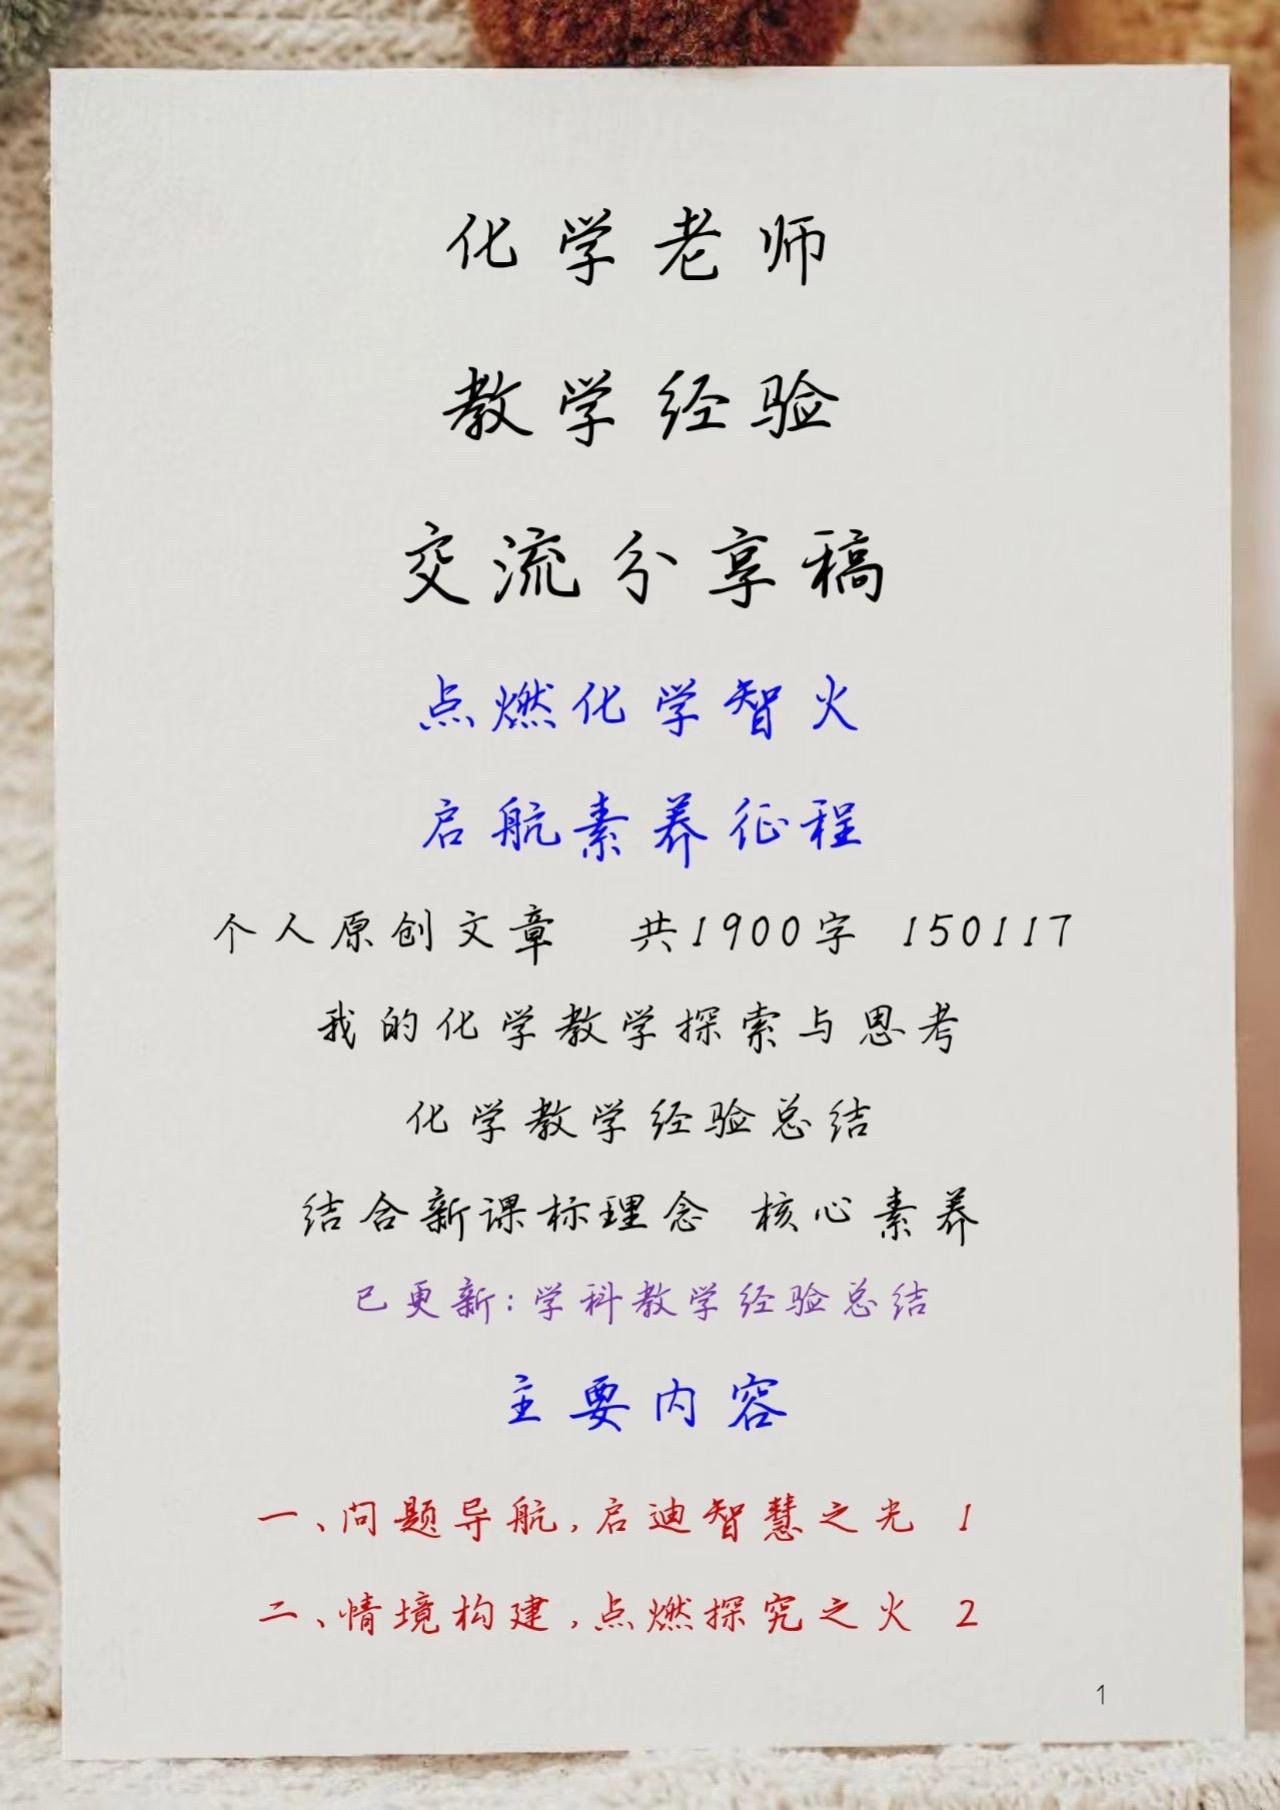 化学老师
教学经验
交流分享稿
点燃化学智火
启航素养征程
个人原创文章 共1900字 150117
我的化学教学探索与思考
化学教学经验总结
结合新课标理念 核心素养
已更新:学科教学经验总结
主要内容
一、问题导航,启迪智慧之光 1
二、情境构建,点燃探究之火 2
1